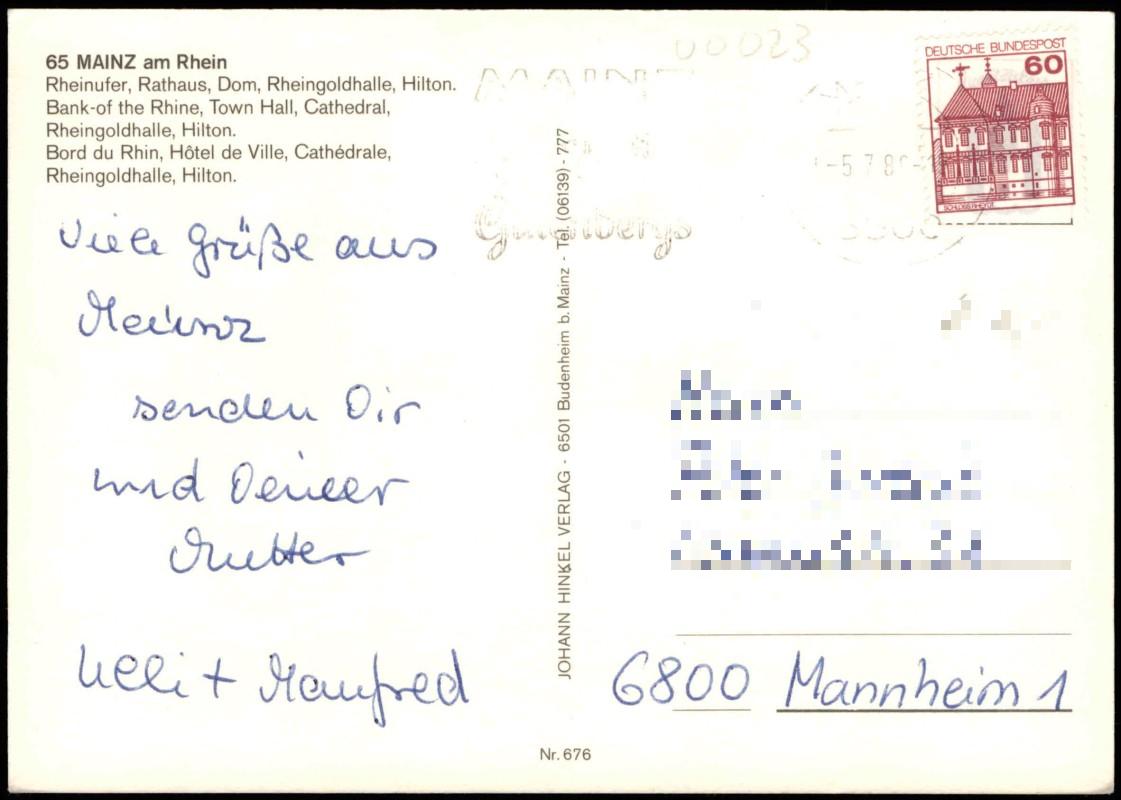 65 MAINZ am Rhein
Rheinufer, Rathaus, Dom, Rheingoldhalle, Hilton.
Bank-of the Rhine, Town Hall, Cathedral,
Rheingoldhalle, Hilton.
Bord du Rhin, Hôtel de Ville, Cathédrale,
Rheingoldhalle, Hilton.
Viele Grüße aus
Mainz
senden Dir
und Deiner
Mutter
Uli + Manfred
JOHANN HINKEL VERLAG - 6501 Budenheim b. Mainz - Tel. (06139) - 777
Nr. 676
00023
MAINZ
Gutenbergs
DEUTSCHE BUNDESPOST
60
6800 Mannheim 1